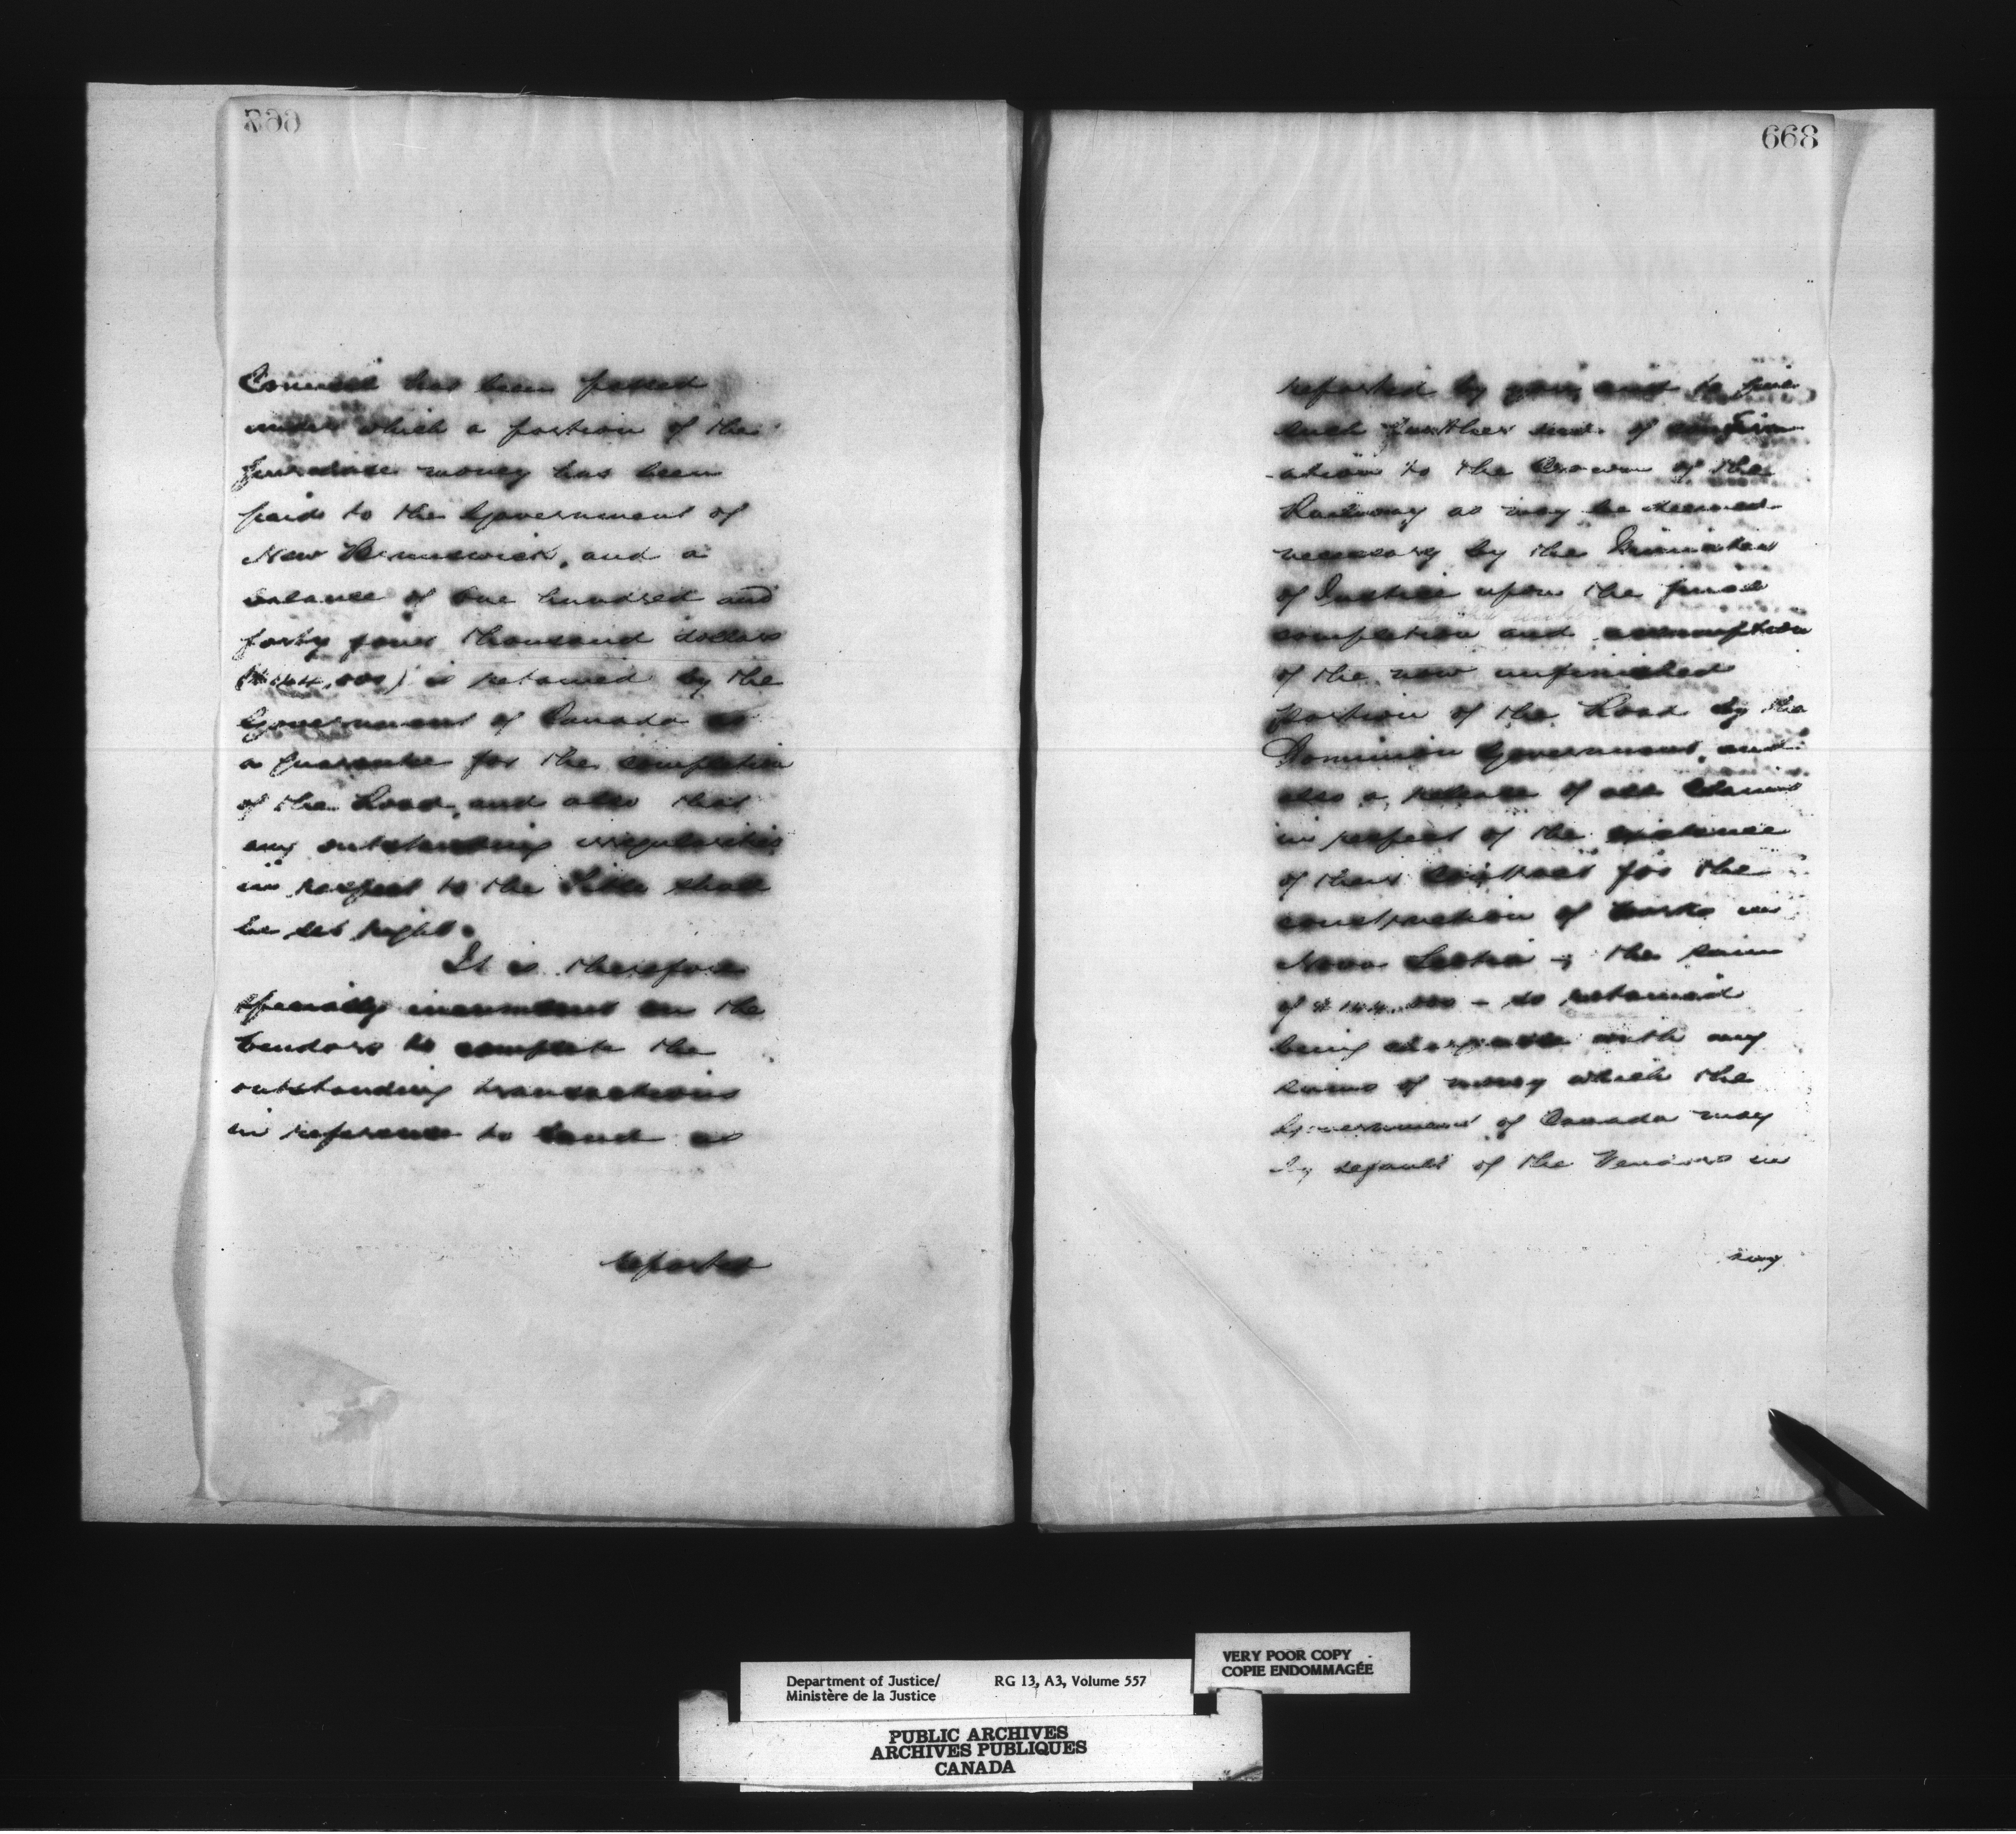 667
Council has been passed
under which a portion of the
purchase money has been
paid to the Government of
New Brunswick, and a
balance of One hundred and
forty four thousand dollars
($144,000) is retained by the
Government of Canada as
a guarantee for the completion
of the Road, and also that
any outstanding irregularities
in respect to the Title shall
be set right.
It is therefore
specially incumbent on the
Vendors to complete the
outstanding transactions
in reference to Land as
reported
668
reported by you, and to give
such further and of confirm
-ation to the Crown of the
Railway as may be deemed
necessary by the Minister
of Justice upon the final
completion and assumption
of the now unfinished
portion of the Road by the
Dominion Government, and
also a release of all Claims
in respect of the existence
of their Contract for the
construction of works in
Nova Scotia - the sum
of $144.000 - so retained
being chargeable with any
sums of money which the
Government of Canada may
by default of the Vendors in
any
Department of Justice/
Ministère de la Justice
RG 13, A3, Volume 557
VERY POOR COPY
COPIE ENDOMMAGÉE
PUBLIC ARCHIVES
ARCHIVES PUBLIQUES
CANADA